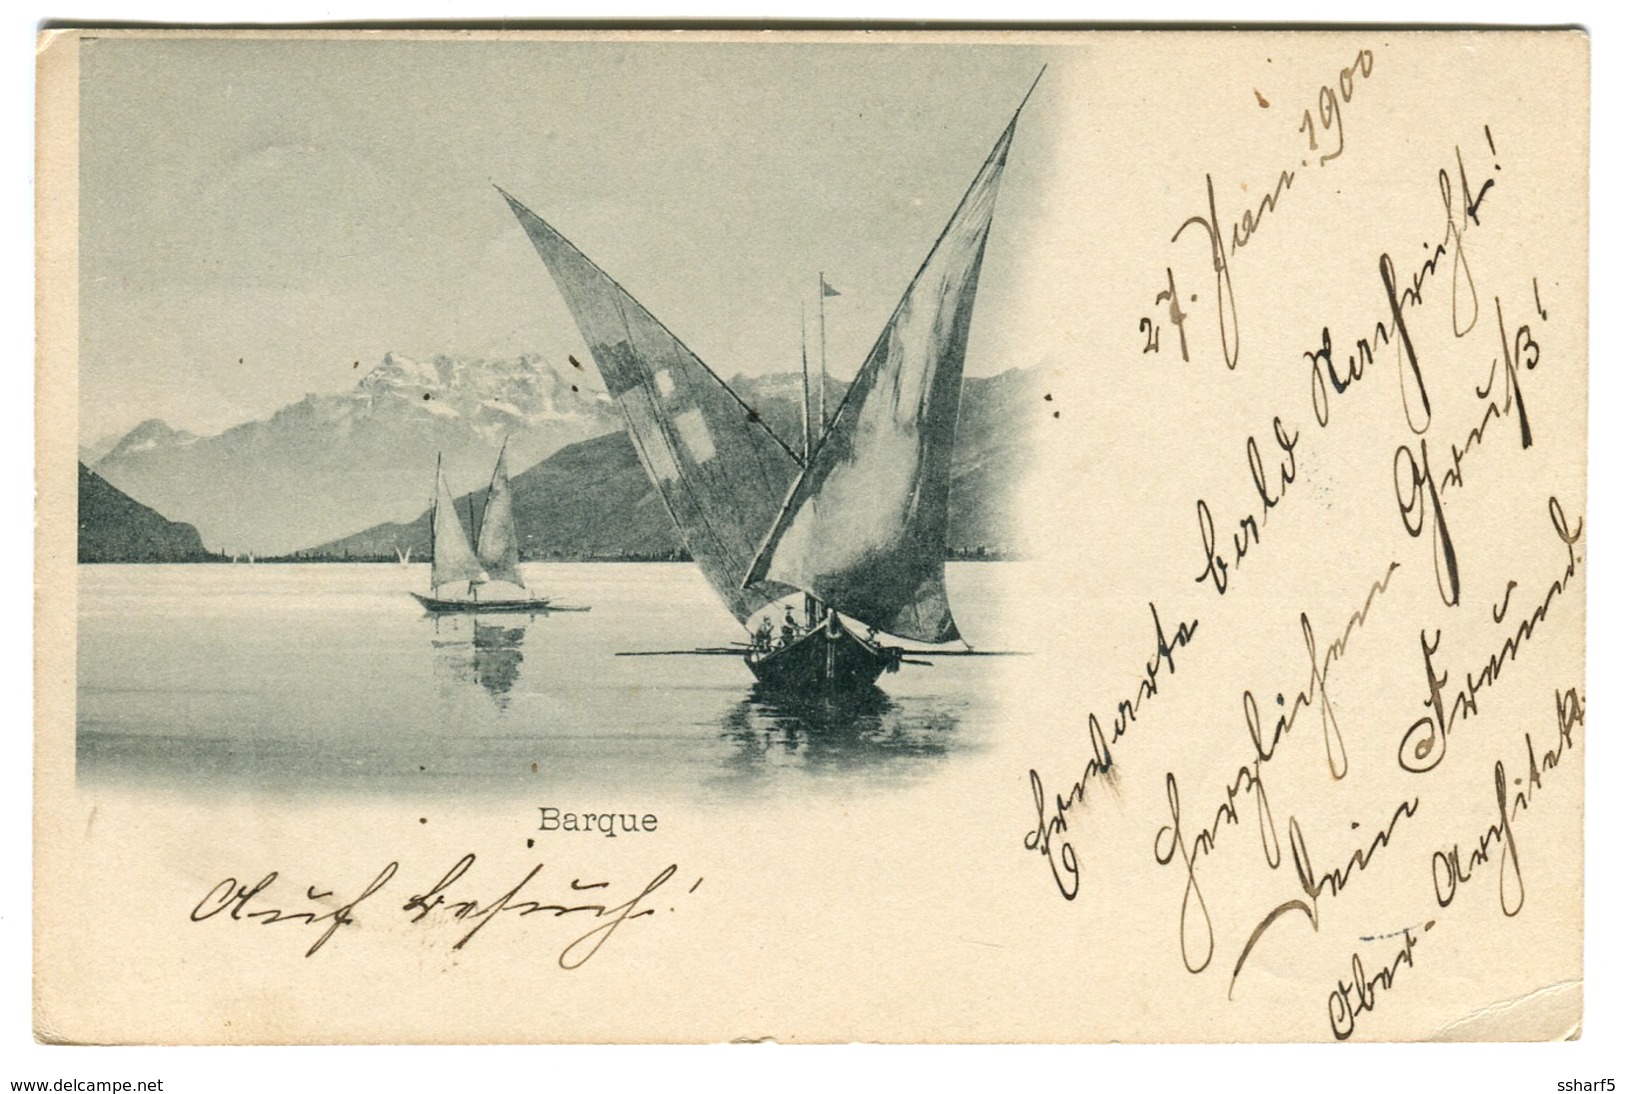 27. Jan. 1900
Erwarte bald Nachricht!
Herzlichen Gruß!
Dein Freund
Ober-Architekt.
Barque
Auf Besuch!
www.delcampe.net
ssharf5